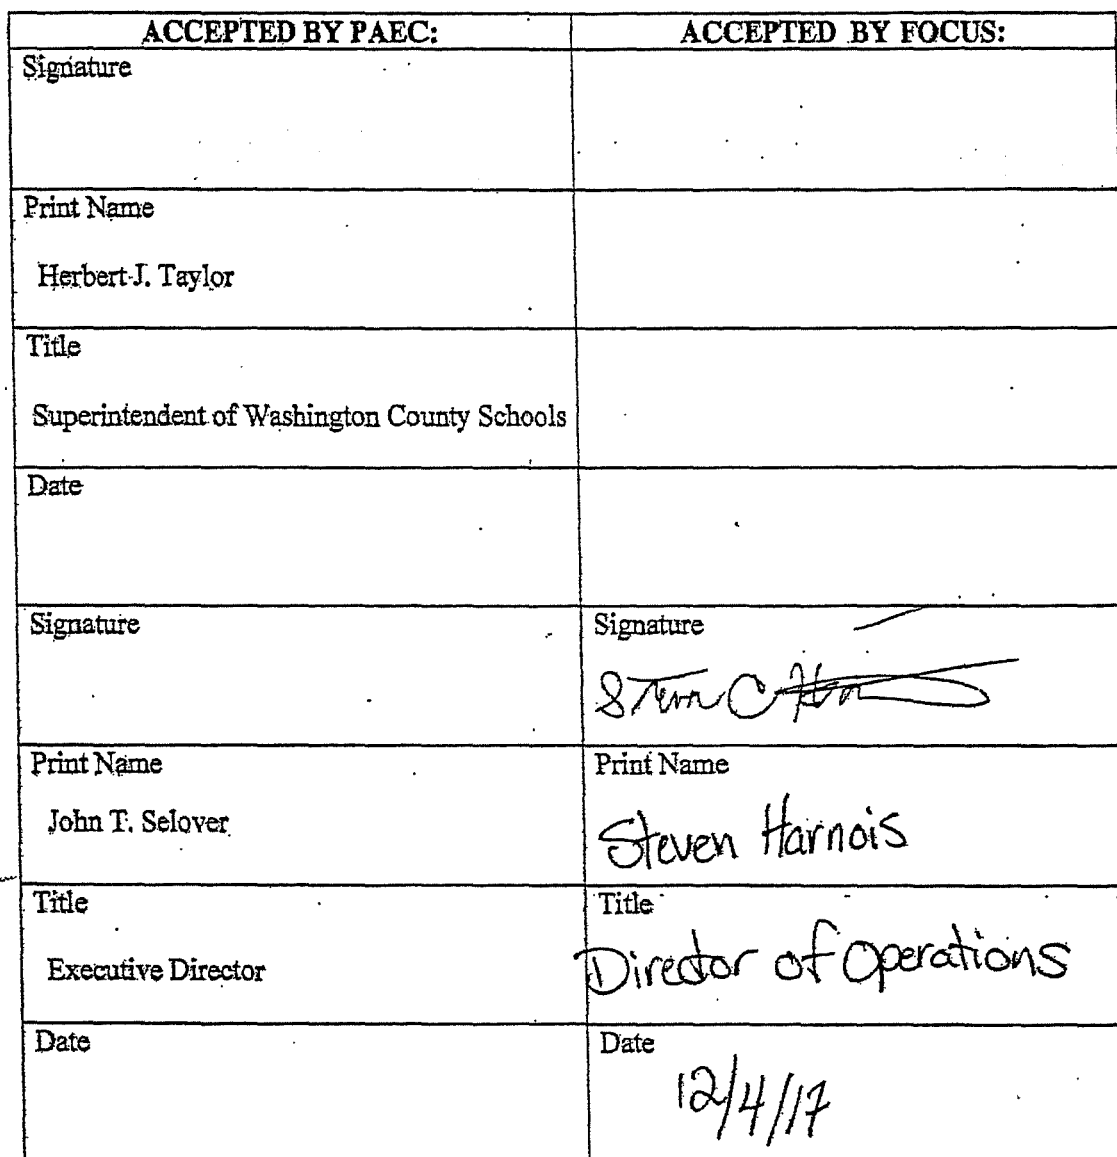 ACCEPTED BY PAEC: ACCEPTED BY FOCUS:
Signature
Print Name
Herbert J. Taylor
Title
Superintendent of Washington County Schools
Date
Signature Signature
Print Name Print Name
John T. Selover Steven Harnois
Title Title
Executive Director Director of Operations
Date Date
12/4/17